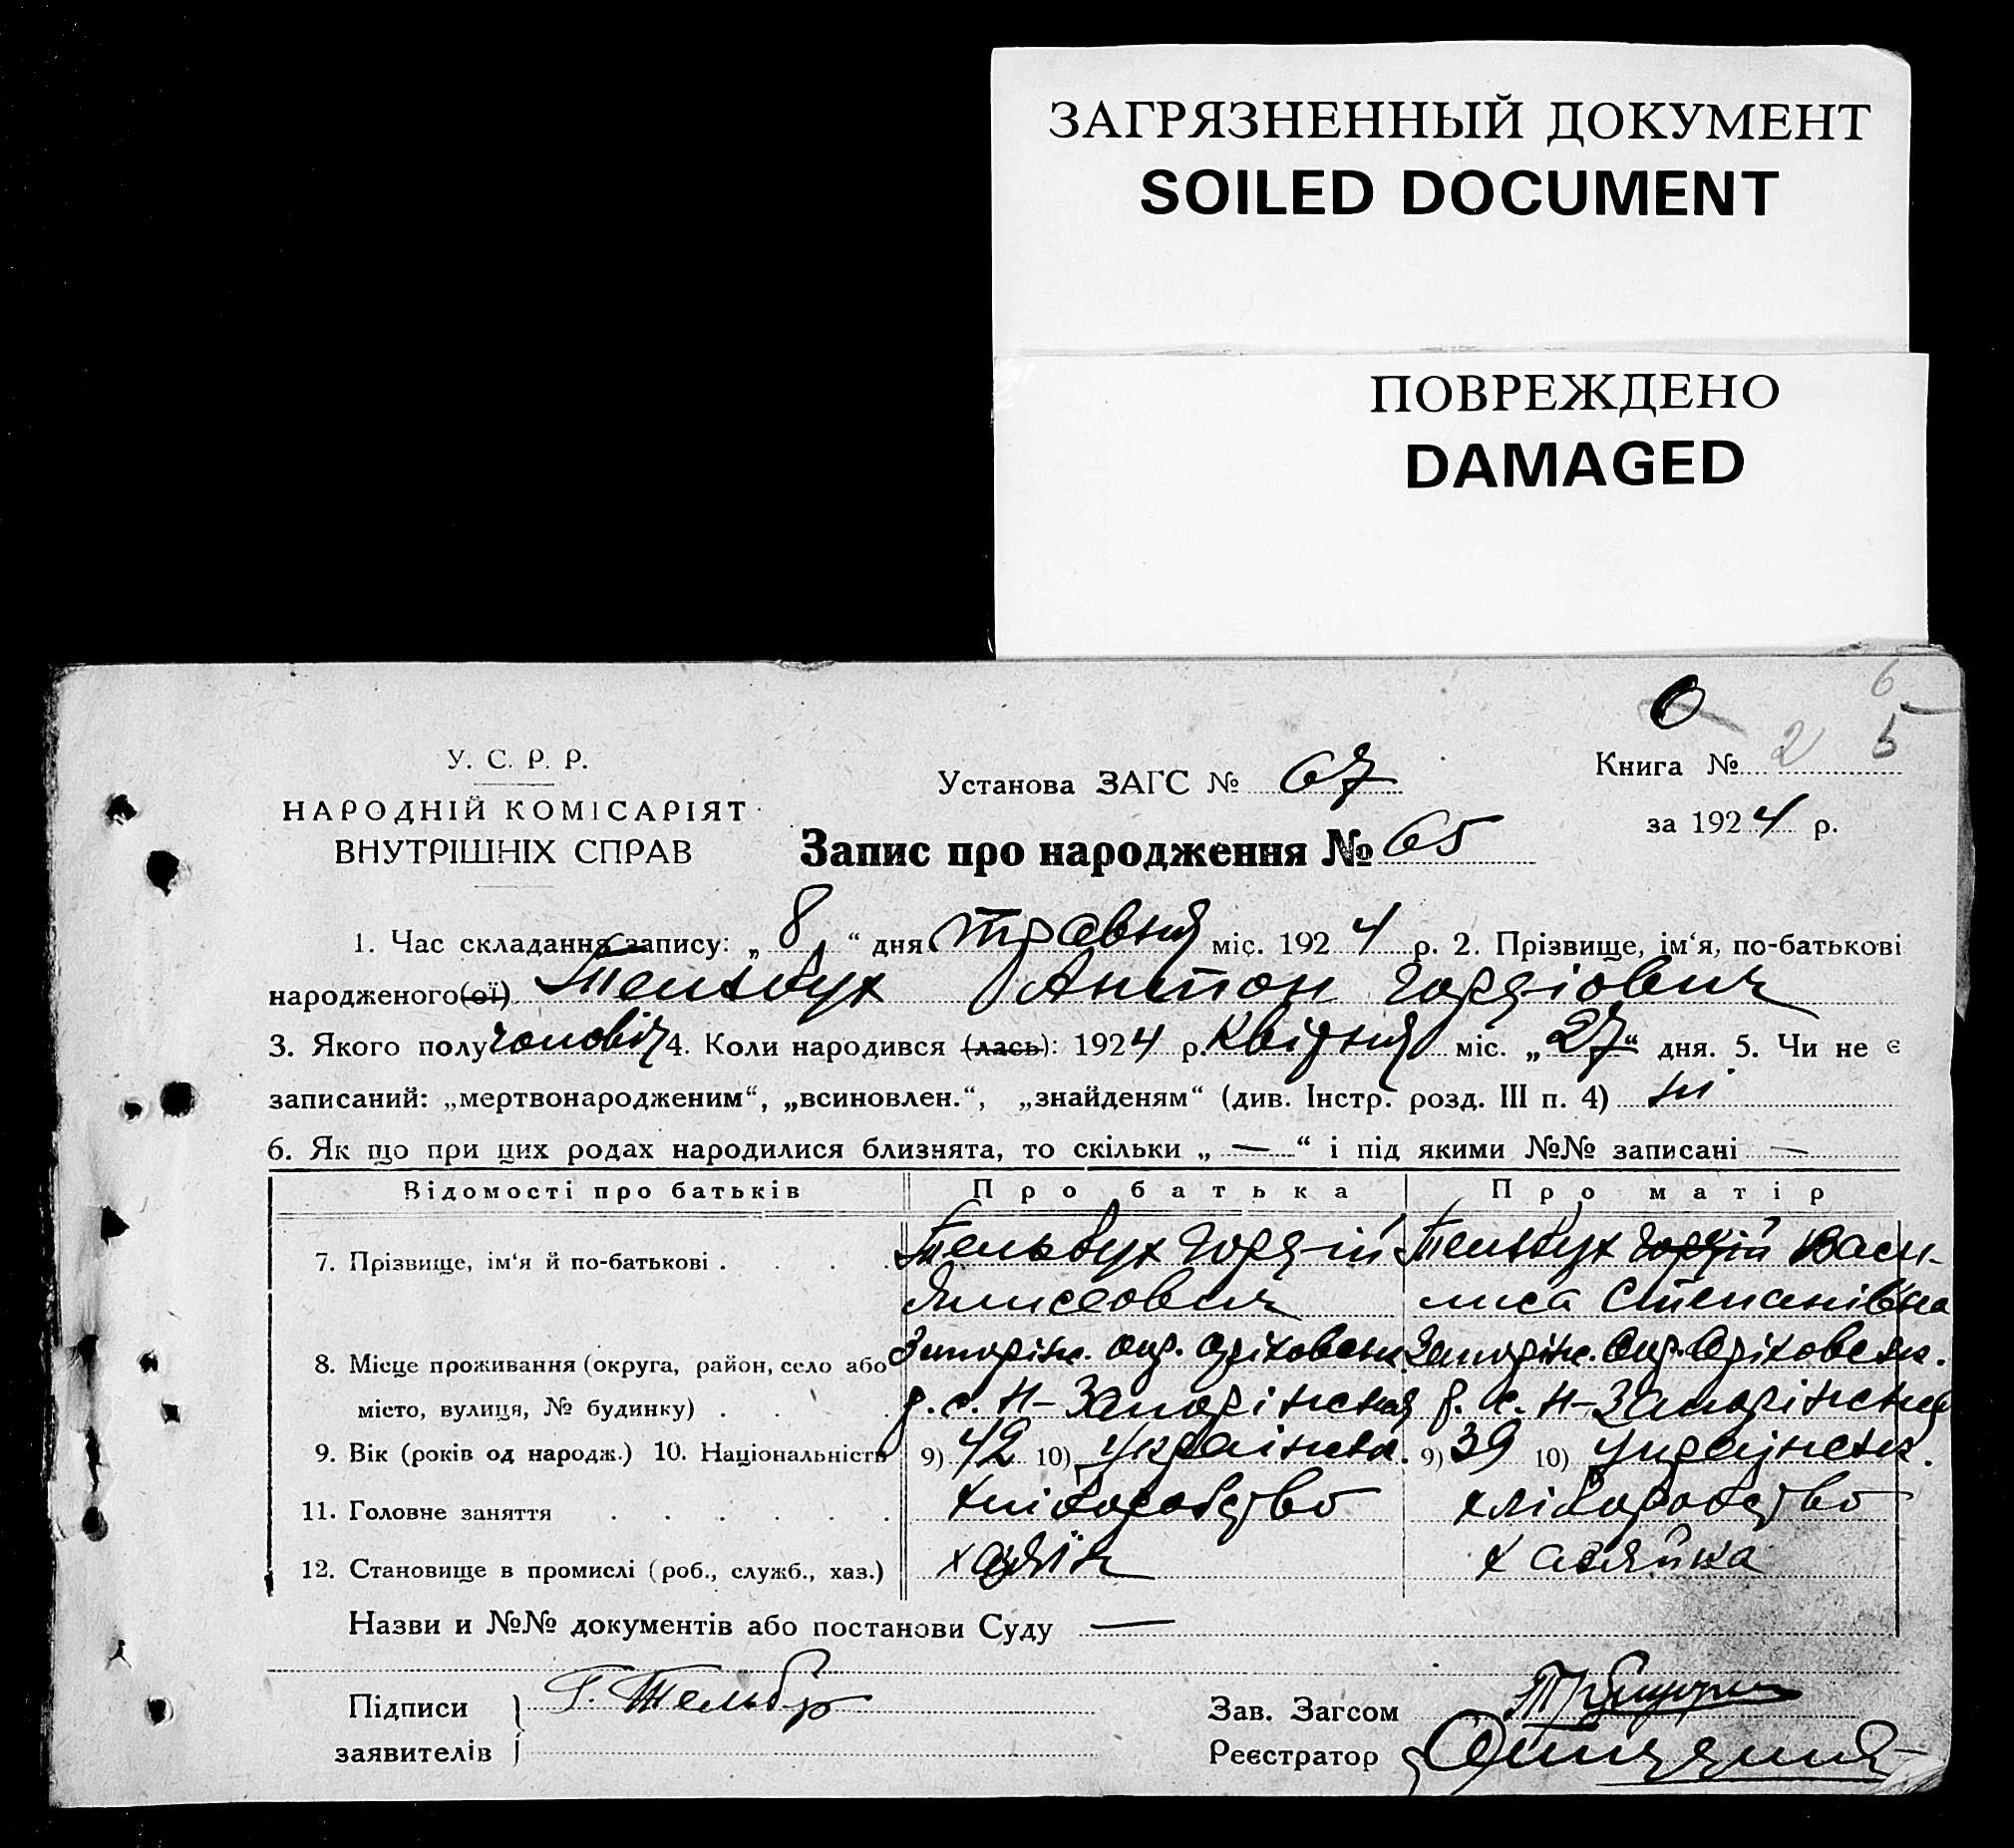 ЗАГРЯЗНЕННЫЙ ДОКУМЕНТ
SOILED DOCUMENT
ПОВРЕЖДЕНО
DAMAGED
6
5
У. С. Р. Р.
НАРОДНІЙ КОМІСАРІЯТ
ВНУТРІШНІХ СПРАВ
Установа ЗАГС № 67
Книга № 2
за 1924 р.
Запис про народження № 65
1. Час складання запису: „ 8 “ дня травня міс. 1924 р. 2. Прізвище, ім‘я, по-батькові
народженого(ої) Тельбух Антон Гордіович
3. Якого полу чоловіч 4. Коли народився (лась): 1924 р. квітня міс. „27“ дня. 5. Чи не є
записаний: „мертвонародженим“, „всиновлен.“, „знайденям“ (див. Інстр. розд. III п. 4) ні
6. Як що при цих родах народилися близнята, то скільки „ — “ і під якими №№ записані —
Відомості про батьків Про батька Про матір
7. Прізвище, ім‘я й по-батькові . . . . Тельбух Гордій Тельбух Гордій Васи-
Єлисеович лиса Степанівна
8. Місце проживання (округа, район, село або Запоріж. окр. Оріховськ Запоріж. окр. Оріховськ.
місто, вулиця, № будинку) . . . р. с. Н-Запоріжжя р. с. Н-Запоріжжя
9. Вік (років од народж.) 10. Національність 9) 42 10) Українськ. 9) 39 10) Українськ.
11. Головне заняття . . . . . . хліборобство хліборобство
12. Становище в промислі (роб., служб., хаз.) хазяїн хазяйка
Назви и №№ документів або постанови Суду —
Підписи Г. Тельбух Зав. Загсом
заявителів Реєстратор